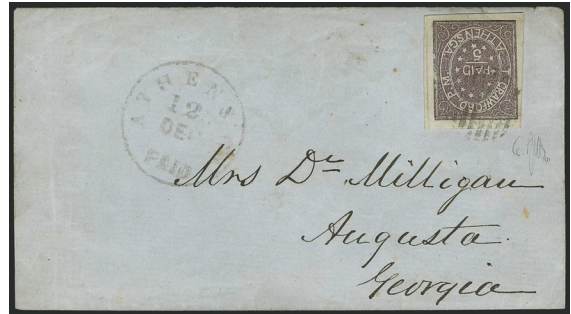 ATHENS
12
DEC
PAID
T. CRAWFORD P.M.
ATHENS GA
PAID
5
Mrs Dr Milligan
Augusta.
Georgia